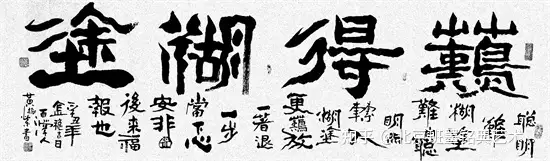 難得糊塗
聰明
難
糊塗
難聰
明
轉入
糊塗
更難放
一著退
一步
當下心
安非圖
後來福
報也
辛丑年
知乎